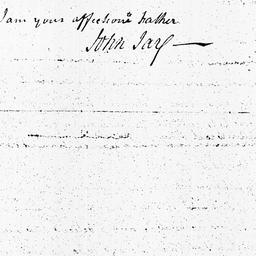 I am your affectione Father
John Jay